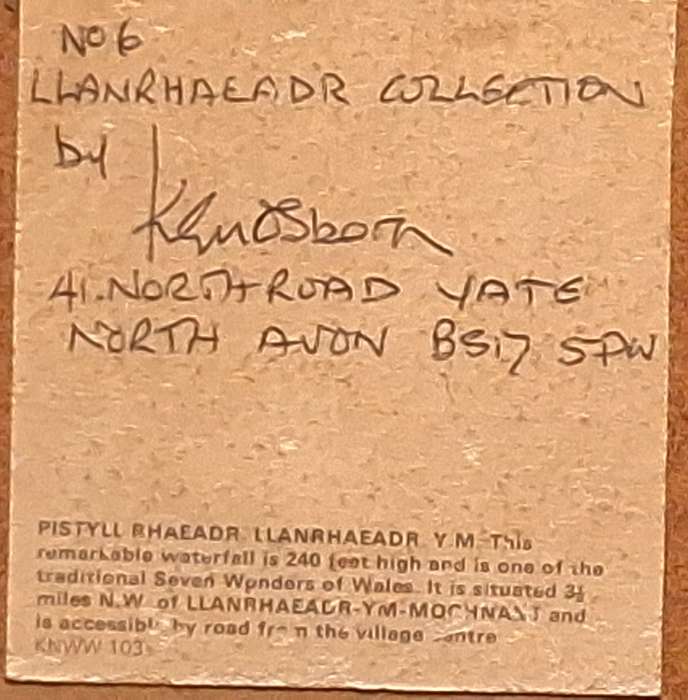 No 6
LLANRHAEADR COLLECTION
by Ken Osborn
41. NORTH ROAD YATE
NORTH AVON BS17 5PW
PISTYLL RHAEADR LLANRHAEADR Y M This
remarkable waterfall is 240 feet high and is one of the
traditional Seven Wonders of Wales. It is situated 3½
miles N.W. of LLANRHAEADR-YM-MOCHNANT and
is accessible by road from the village centre
KNWW 103